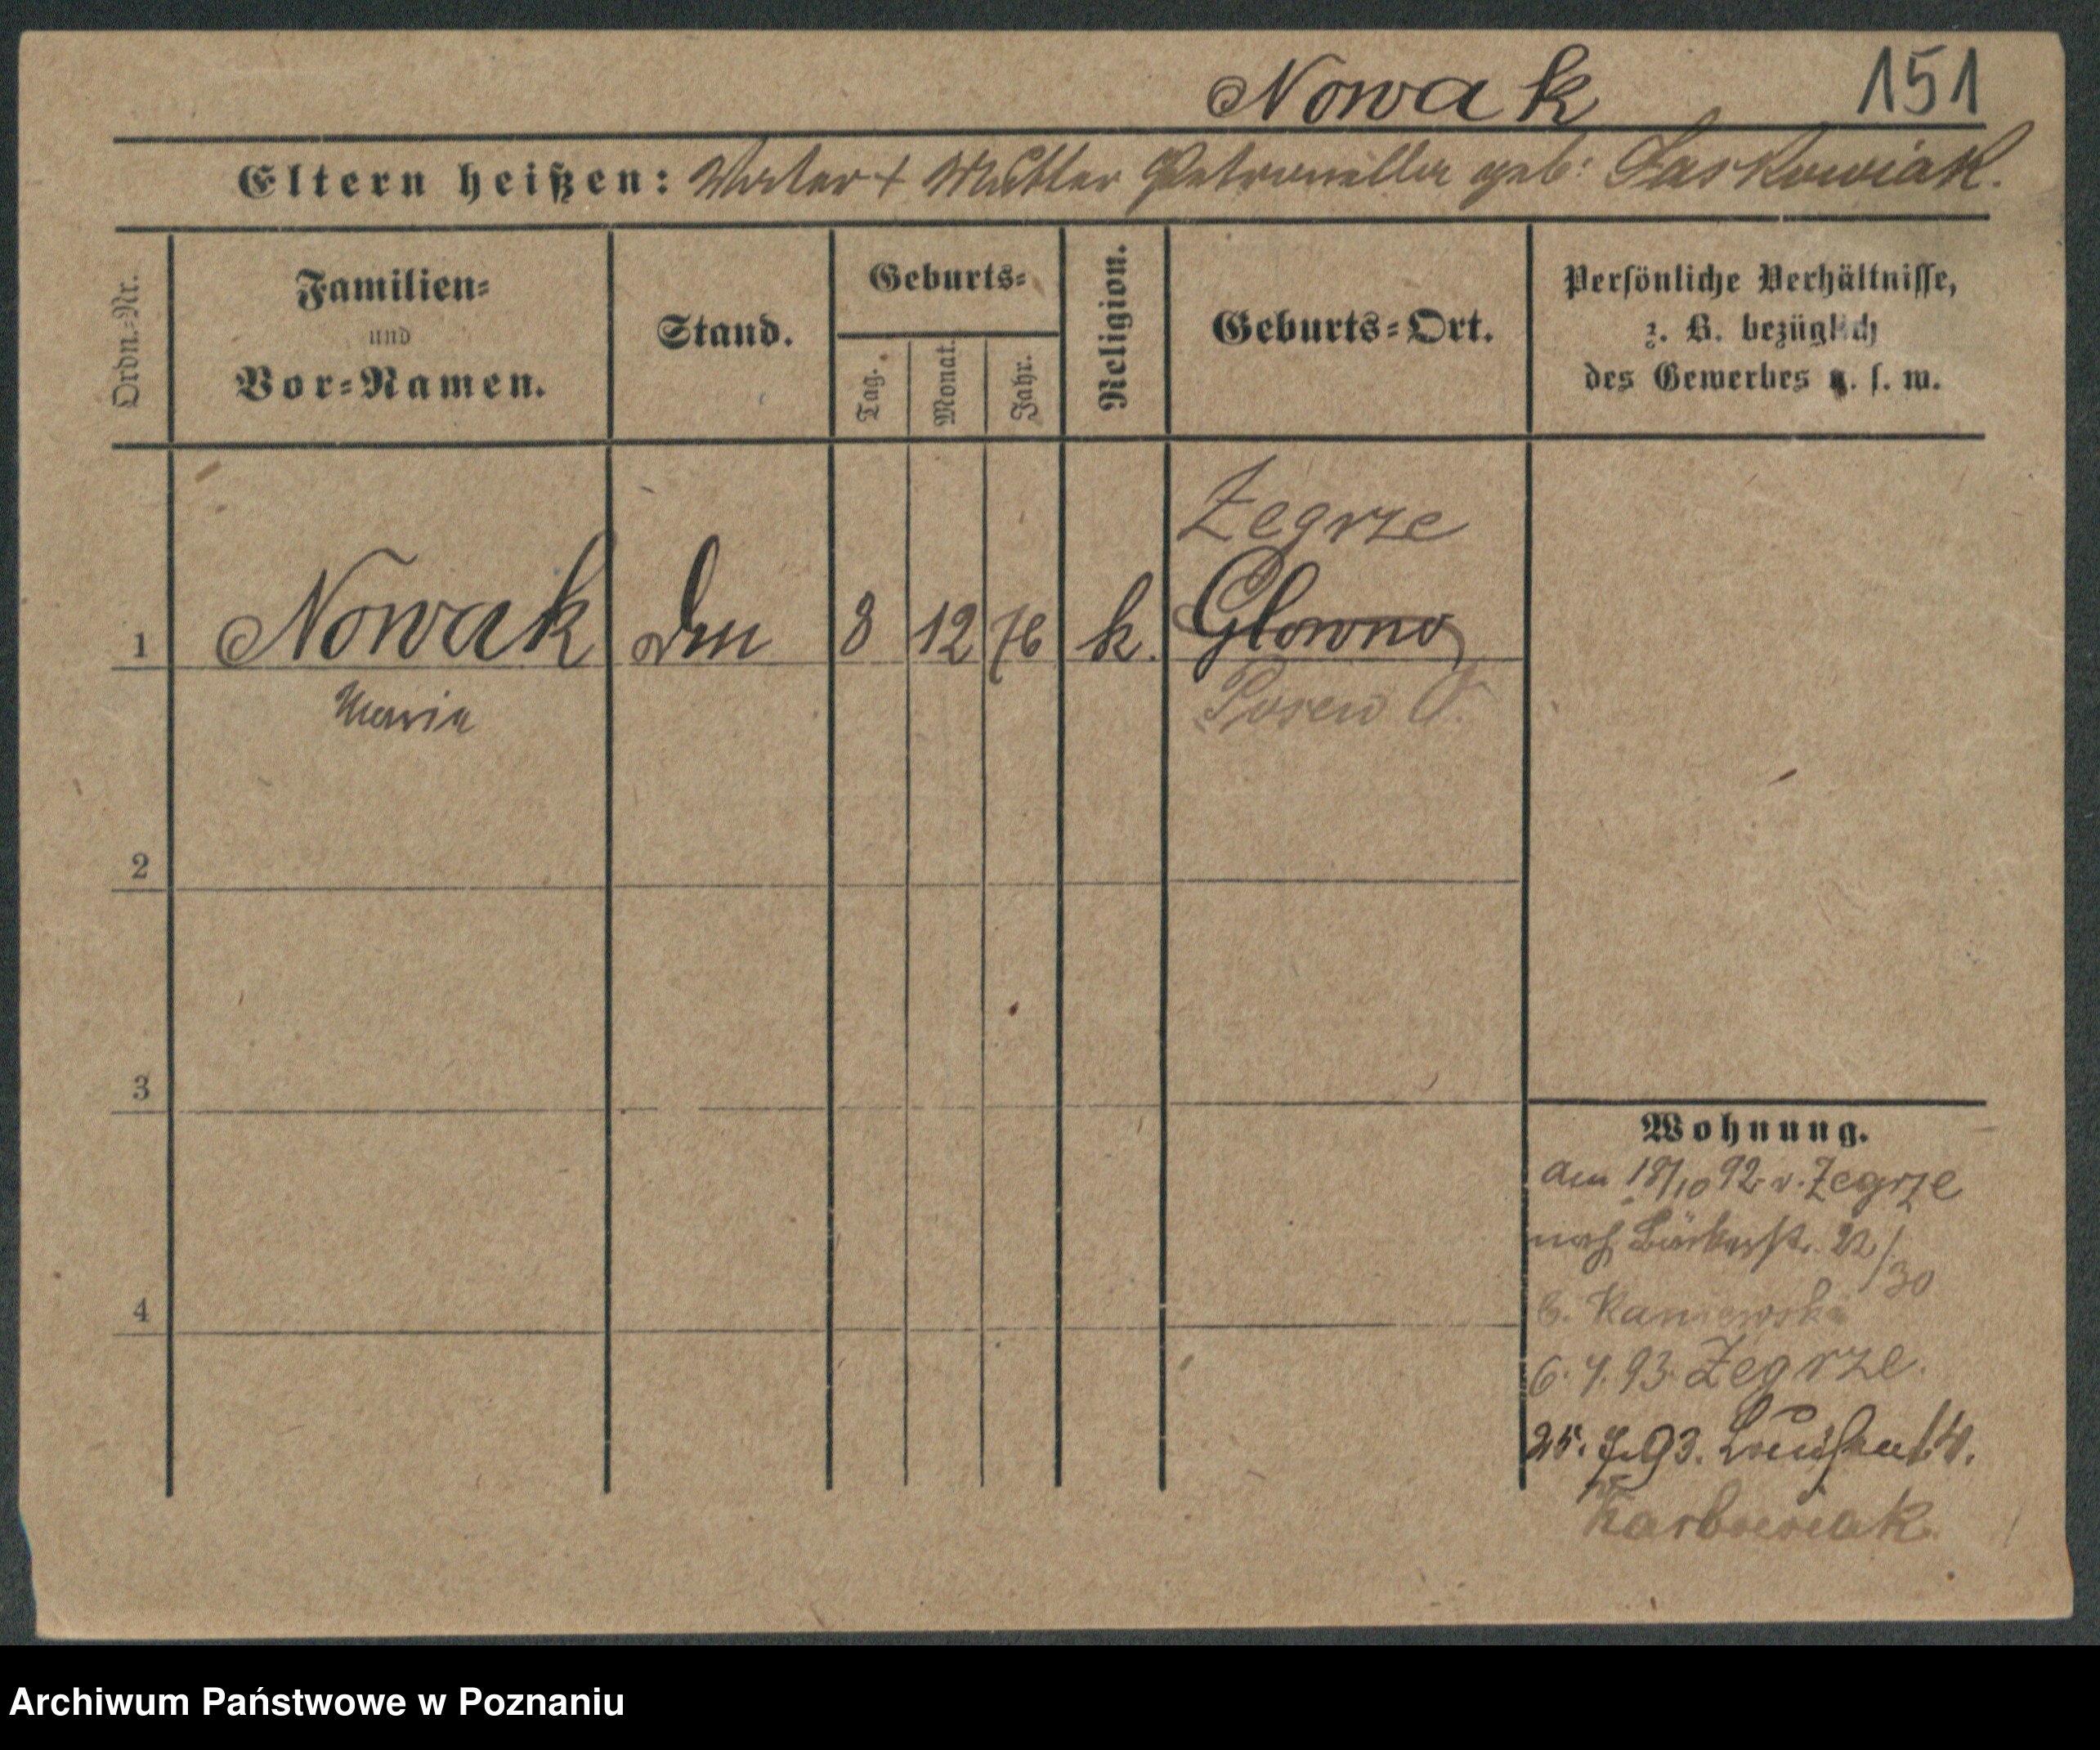 Nowak 151
Eltern heißen: Vater + Mutter Petronella geb: Jaskowiak.
Ordn.-Nr.
Familien-
und
Vor-Namen.
Stand.
Geburts-
Tag.
Monat.
Jahr.
Religion.
Geburts-Ort.
Persönliche Verhältnisse,
z. B. bezüglich
des Gewerbes u. s. w.
Zegrze
1 Nowak 8 12 76 k. Glowno
Maria Posen O.
2
3
4
Wohnung.
am 18/10 92 v. Zegrze
nach Bäckerstr. 22/30
b. Kaniewski
6. 4. 93. Zegrze.
25. 7. 93. 14.
Karbowiak
Archiwum Państwowe w Poznaniu